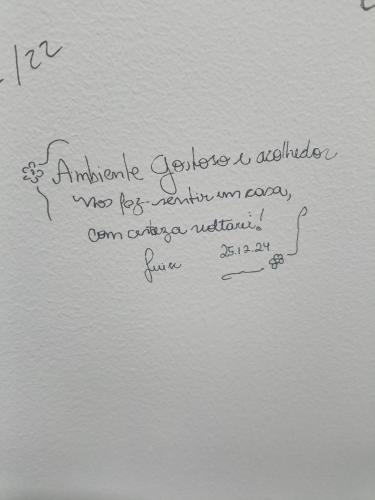 /22
Ambiente Gostoso e acolhedor
nos fez sentir em casa,
com certeza voltarei!
25.12.24